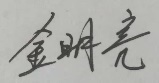 金明亮